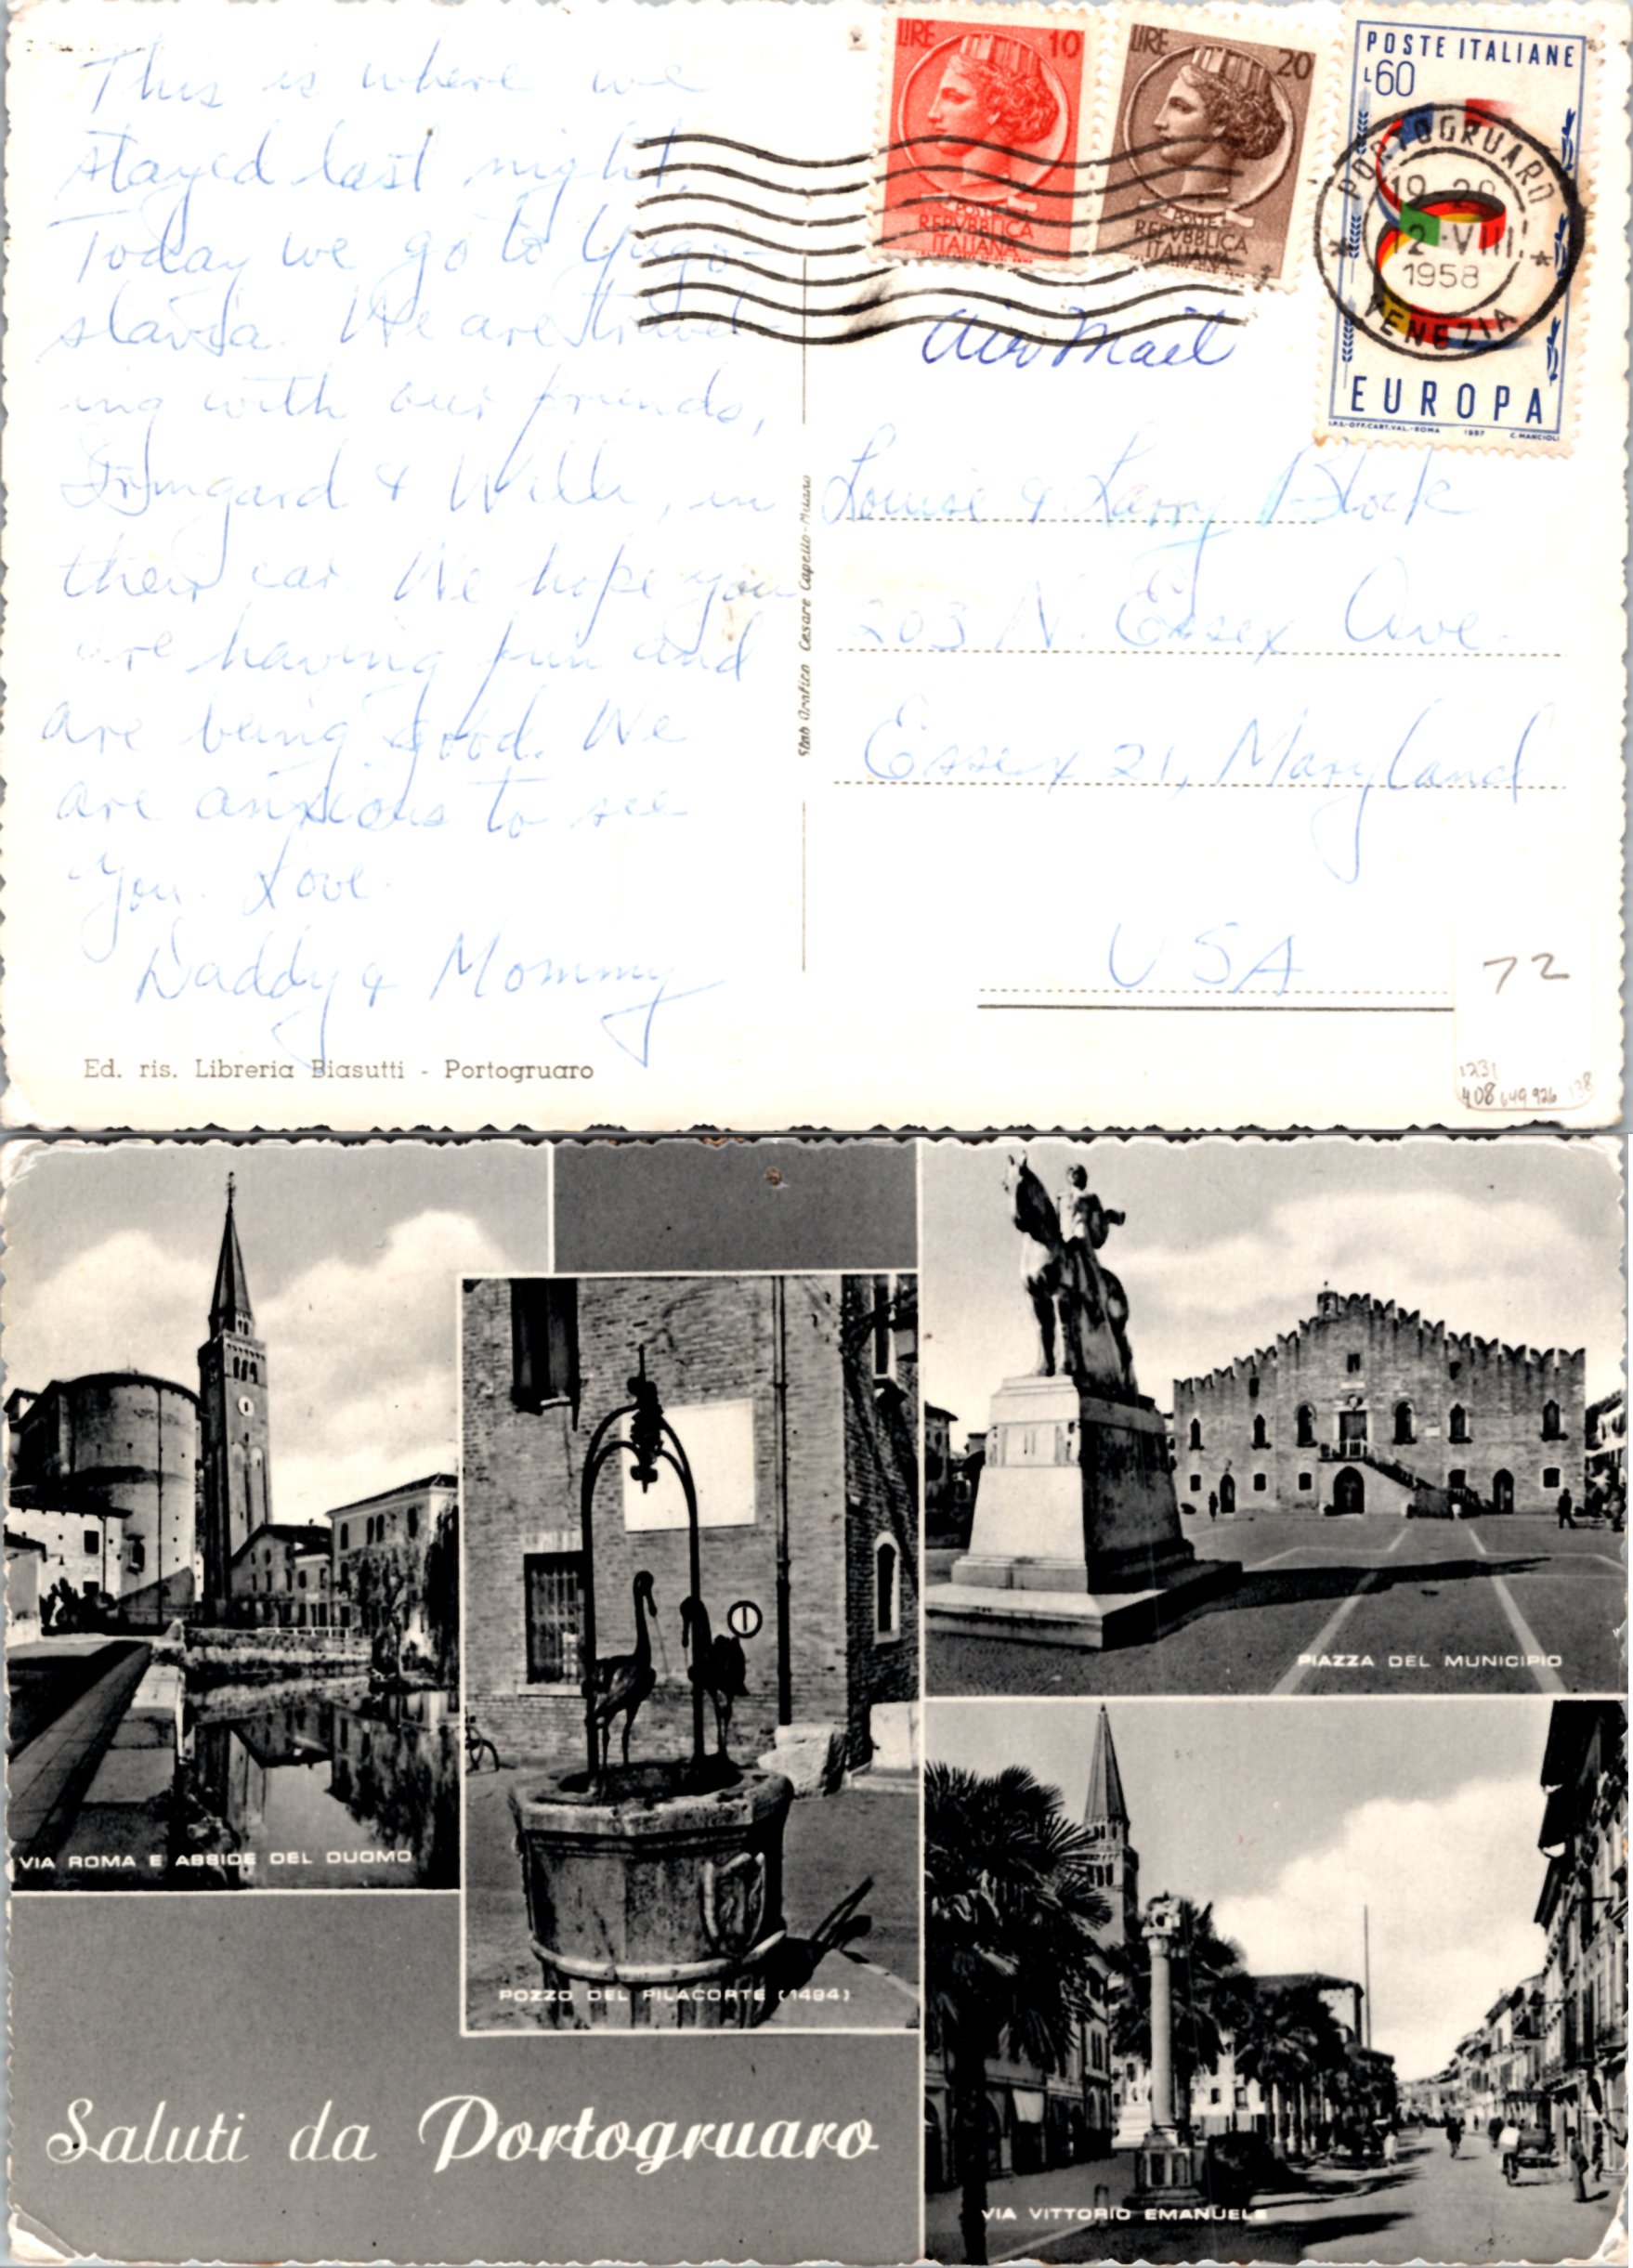 This is where we
stayed last night.
Today we go to Yugo-
slavia. We are travel-
ing with our friends,
Irmgard & Willi, in
their car. We hope you
are having fun and
are being good. We
are anxious to see
you. Love.
Daddy & Mommy
Ed. ris. Libreria Biasutti - Portogruaro
Stab Grafico Cesare Capello-Milano
LIRE 10
POSTE
REPVBBLICA
ITALIANA
LIRE 20
POSTE
REPVBBLICA
ITALIANA
POSTE ITALIANE
L60
EUROPA
I.P.S.-OFF.CART.VAL.-ROMA 1957 C.MANCIOLI
PORTOGRUARO
19-20
12·VIII.
1958
VENEZIA
Air Mail
Louise & Larry Block
203 N. Essex Ave.
Essex 21, Maryland
USA
72
1231
408 649 926 138
VIA ROMA E ABSIDE DEL DUOMO
POZZO DEL PILACORTE (1494)
PIAZZA DEL MUNICIPIO
VIA VITTORIO EMANUELE
Saluti da Portogruaro